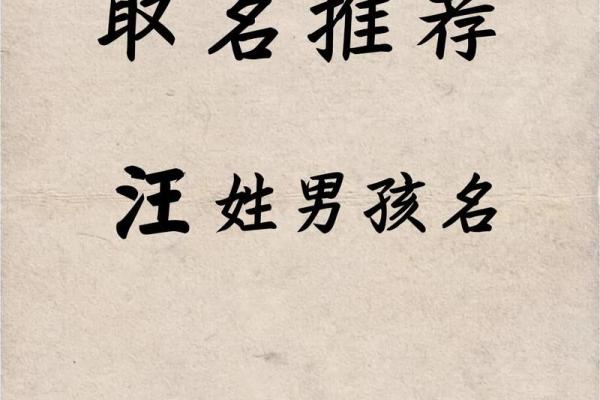 取名推荐
汪姓男孩名